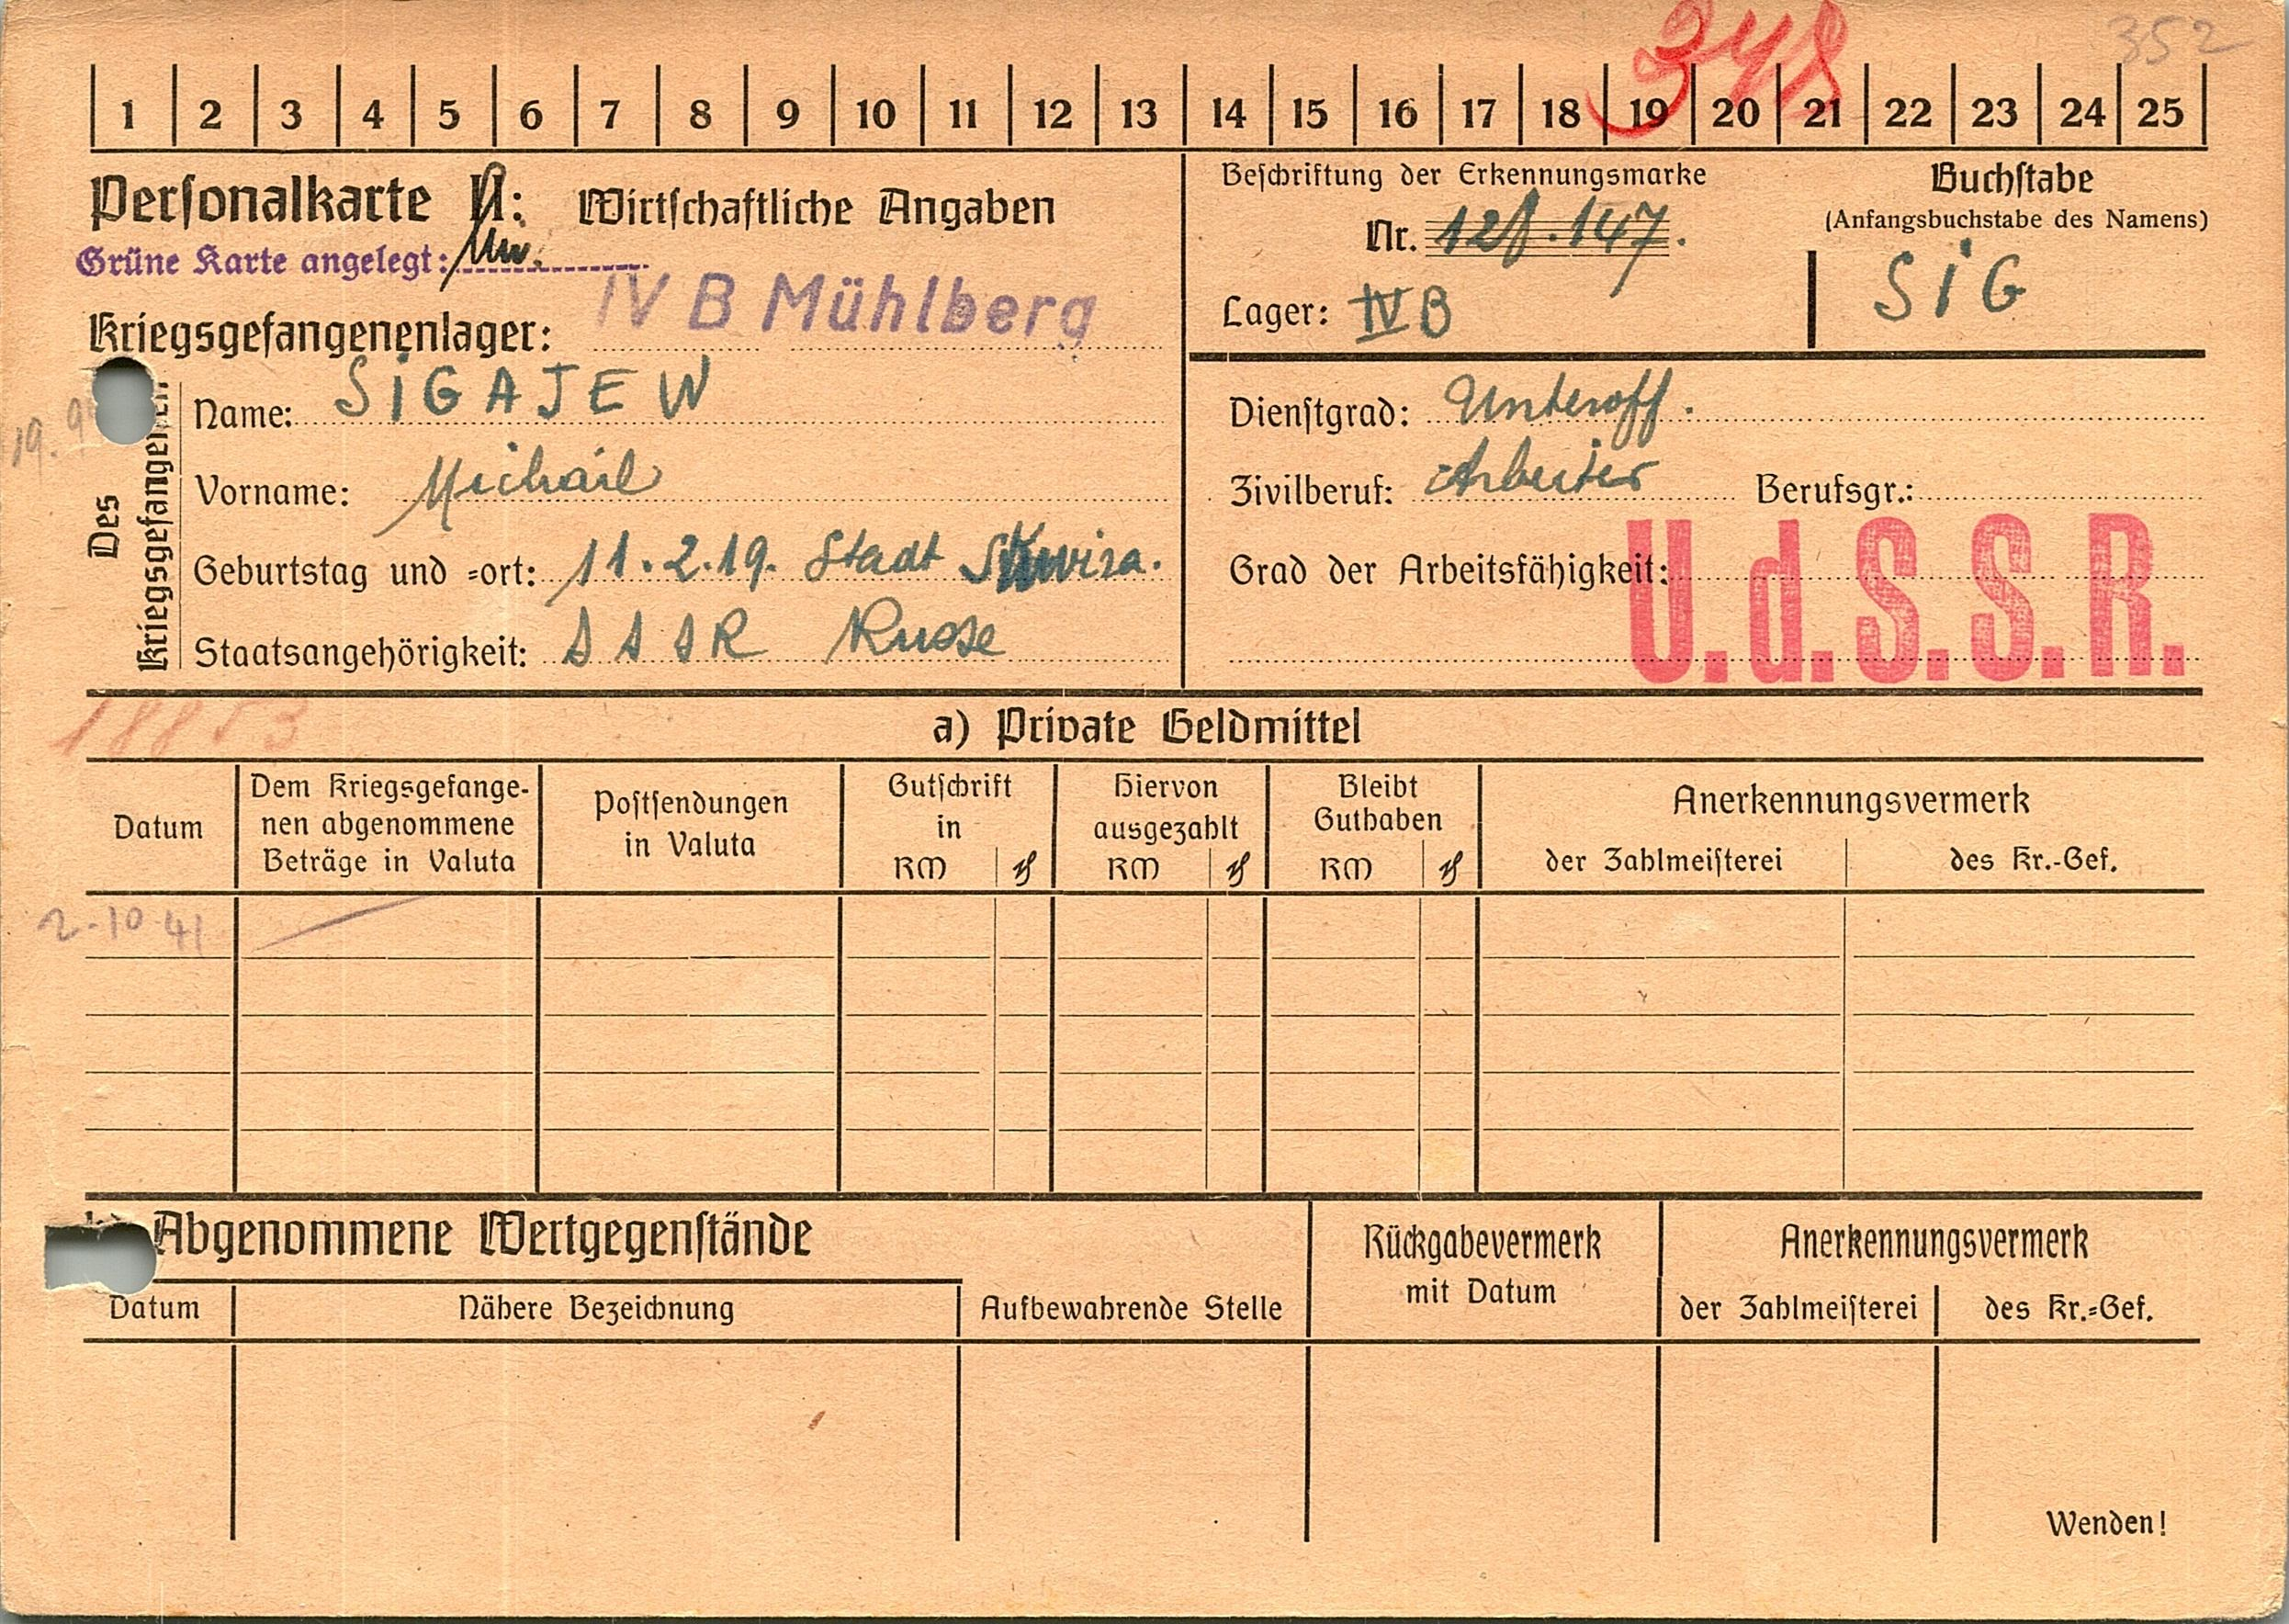 348 352
1 2 3 4 5 6 7 8 9 10 11 12 13 14 15 16 17 18 19 20 21 22 23 24 25
Personalkarte II: Wirtschaftliche Angaben
Grüne Karte angelegt:
Kriegsgefangenenlager: IV B Mühlberg
Beschriftung der Erkennungsmarke
Nr. 128.147.
Lager: IV B
Buchstabe
(Anfangsbuchstabe des Namens)
SIG
Des Kriegsgefangenen
19. 9
Name: SIGAJEW
Vorname: Michail
Geburtstag und =ort: 11.2.19. Stadt Skwira.
Staatsangehörigkeit: SSSR Russe
Dienstgrad: Unteroff.
Zivilberuf: Arbeiter Berufsgr.:
Grad der Arbeitsfähigkeit:
U.d.S.S.R.
18853
a) Private Geldmittel
Datum
Dem Kriegsgefange-
nen abgenommene
Beträge in Valuta
Postsendungen
in Valuta
Gutschrift
in
RM ₰
Hiervon
ausgezahlt
RM ₰
Bleibt
Guthaben
RM ₰
Anerkennungsvermerk
der Zahlmeisterei des Kr.-Gef.
2-10 41
Abgenommene Wertgegenstände
Datum
Nähere Bezeichnung
Aufbewahrende Stelle
Rückgabevermerk
mit Datum
Anerkennungsvermerk
der Zahlmeisterei des Kr.=Gef.
Wenden!